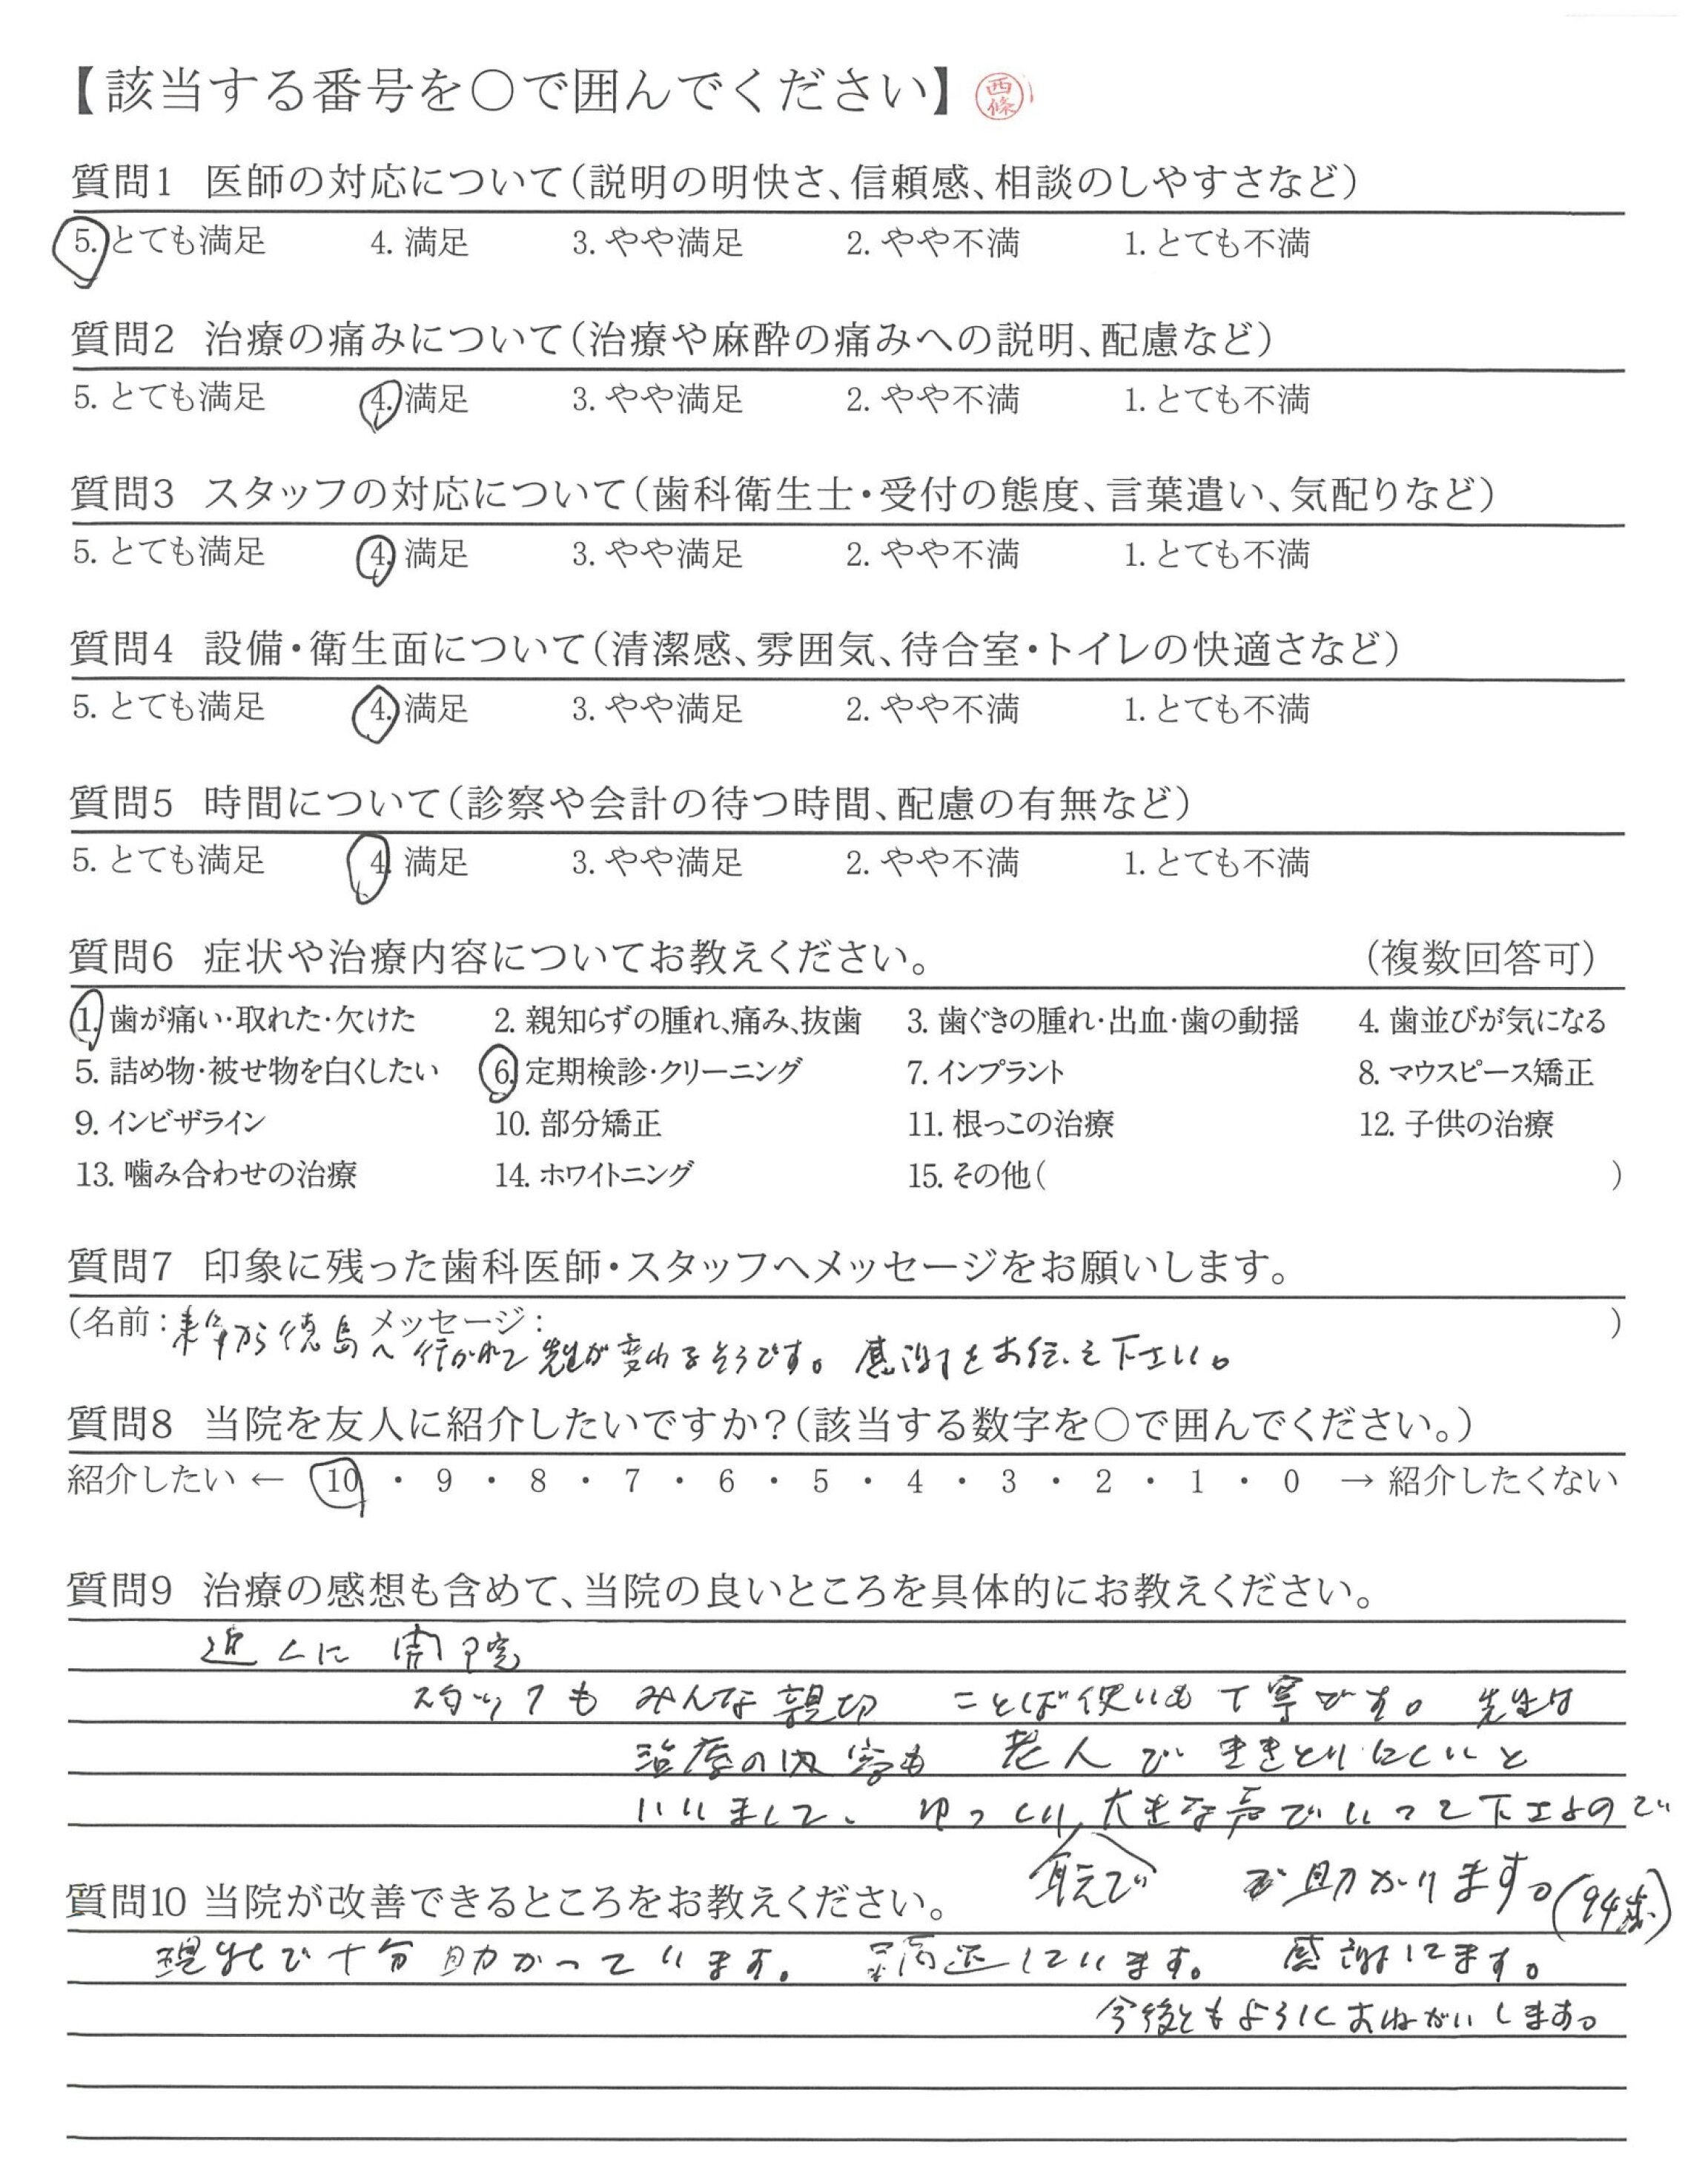 【該当する番号を○で囲んでください】 西條
質問1 医師の対応について(説明の明快さ、信頼感、相談のしやすさなど)
5. とても満足 4. 満足 3. やや満足 2. やや不満 1. とても不満
質問2 治療の痛みについて(治療や麻酔の痛みへの説明、配慮など)
5. とても満足 4. 満足 3. やや満足 2. やや不満 1. とても不満
質問3 スタッフの対応について(歯科衛生士・受付の態度、言葉遣い、気配りなど)
5. とても満足 4. 満足 3. やや満足 2. やや不満 1. とても不満
質問4 設備・衛生面について(清潔感、雰囲気、待合室・トイレの快適さなど)
5. とても満足 4. 満足 3. やや満足 2. やや不満 1. とても不満
質問5 時間について(診察や会計の待つ時間、配慮の有無など)
5. とても満足 4. 満足 3. やや満足 2. やや不満 1. とても不満
質問6 症状や治療内容についてお教えください。 (複数回答可)
1. 歯が痛い・取れた・欠けた 2. 親知らずの腫れ、痛み、抜歯 3. 歯ぐきの腫れ・出血・歯の動揺 4. 歯並びが気になる
5. 詰め物・被せ物を白くしたい 6. 定期検診・クリーニング 7. インプラント 8. マウスピース矯正
9. インビザライン 10. 部分矯正 11. 根っこの治療 12. 子供の治療
13. 噛み合わせの治療 14. ホワイトニング 15. その他( )
質問7 印象に残った歯科医師・スタッフへメッセージをお願いします。
(名前: メッセージ: )
から徳島へ行かれて先生が変わるそうです。感謝をお伝え下さい。
質問8 当院を友人に紹介したいですか?(該当する数字を○で囲んでください。)
紹介したい ← 10 ・ 9 ・ 8 ・ 7 ・ 6 ・ 5 ・ 4 ・ 3 ・ 2 ・ 1 ・ 0 → 紹介したくない
質問9 治療の感想も含めて、当院の良いところを具体的にお教えください。
近くに 開院
スタッフも みんな親切 ことば使いも丁寧です。先生は
治療の内容も 老人で ききとりにくいと
いいまして、ゆっくり大きな声でいって下さるので
助かります。(94歳)
質問10 当院が改善できるところをお教えください。
現状で十分助かっています。 満足しています。 感謝してます。
今後ともよろしくおねがいします。